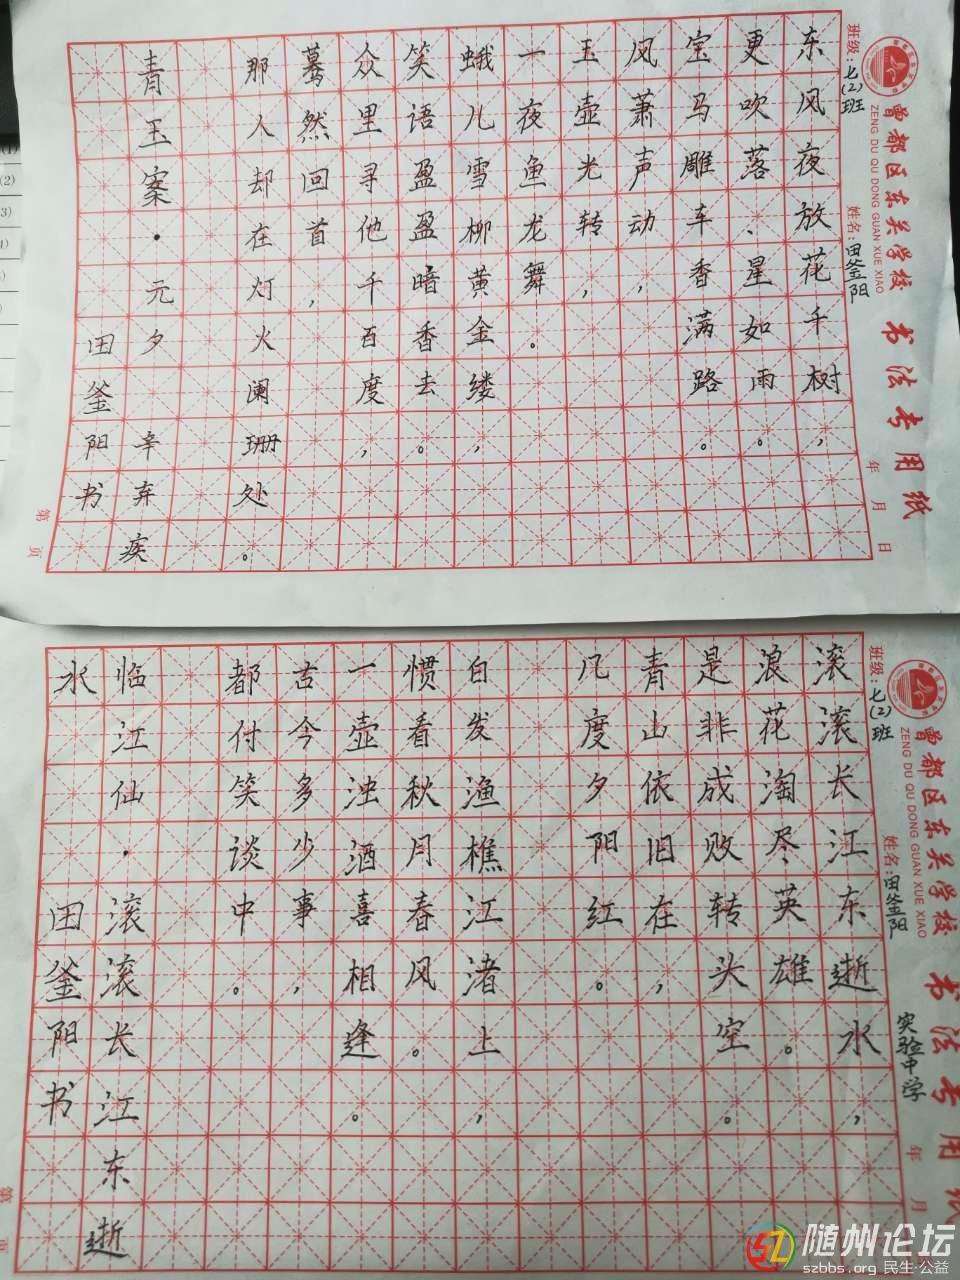 曾都区东关学校 书法专用纸
ZENG DU QU DONG GUAN XUE XIAO
班级:七(2)班 姓名:田釜阳 年 月 日
东风夜放花千树,
更吹落、星如雨。
宝马雕车香满路。
风萧声动,
玉壶光转,
一夜鱼龙舞。
蛾儿雪柳黄金缕,
笑语盈盈暗香去。
众里寻他千百度,
蓦然回首,
那人却在灯火阑珊处。
青玉案·元夕 辛弃疾
田釜阳书
第 页
曾都区东关学校 书法专用纸
ZENG DU QU DONG GUAN XUE XIAO
班级:七(2)班 姓名:田釜阳 实验中学 年 月
滚滚长江东逝水,
浪花淘尽英雄。
是非成败转头空。
青山依旧在,
几度夕阳红。
白发渔樵江渚上,
惯看秋月春风。
一壶浊酒喜相逢。
古今多少事,
都付笑谈中。
临江仙·滚滚长江东逝
水 田釜阳书
第 页
随州论坛
szbbs.org 民生·公益